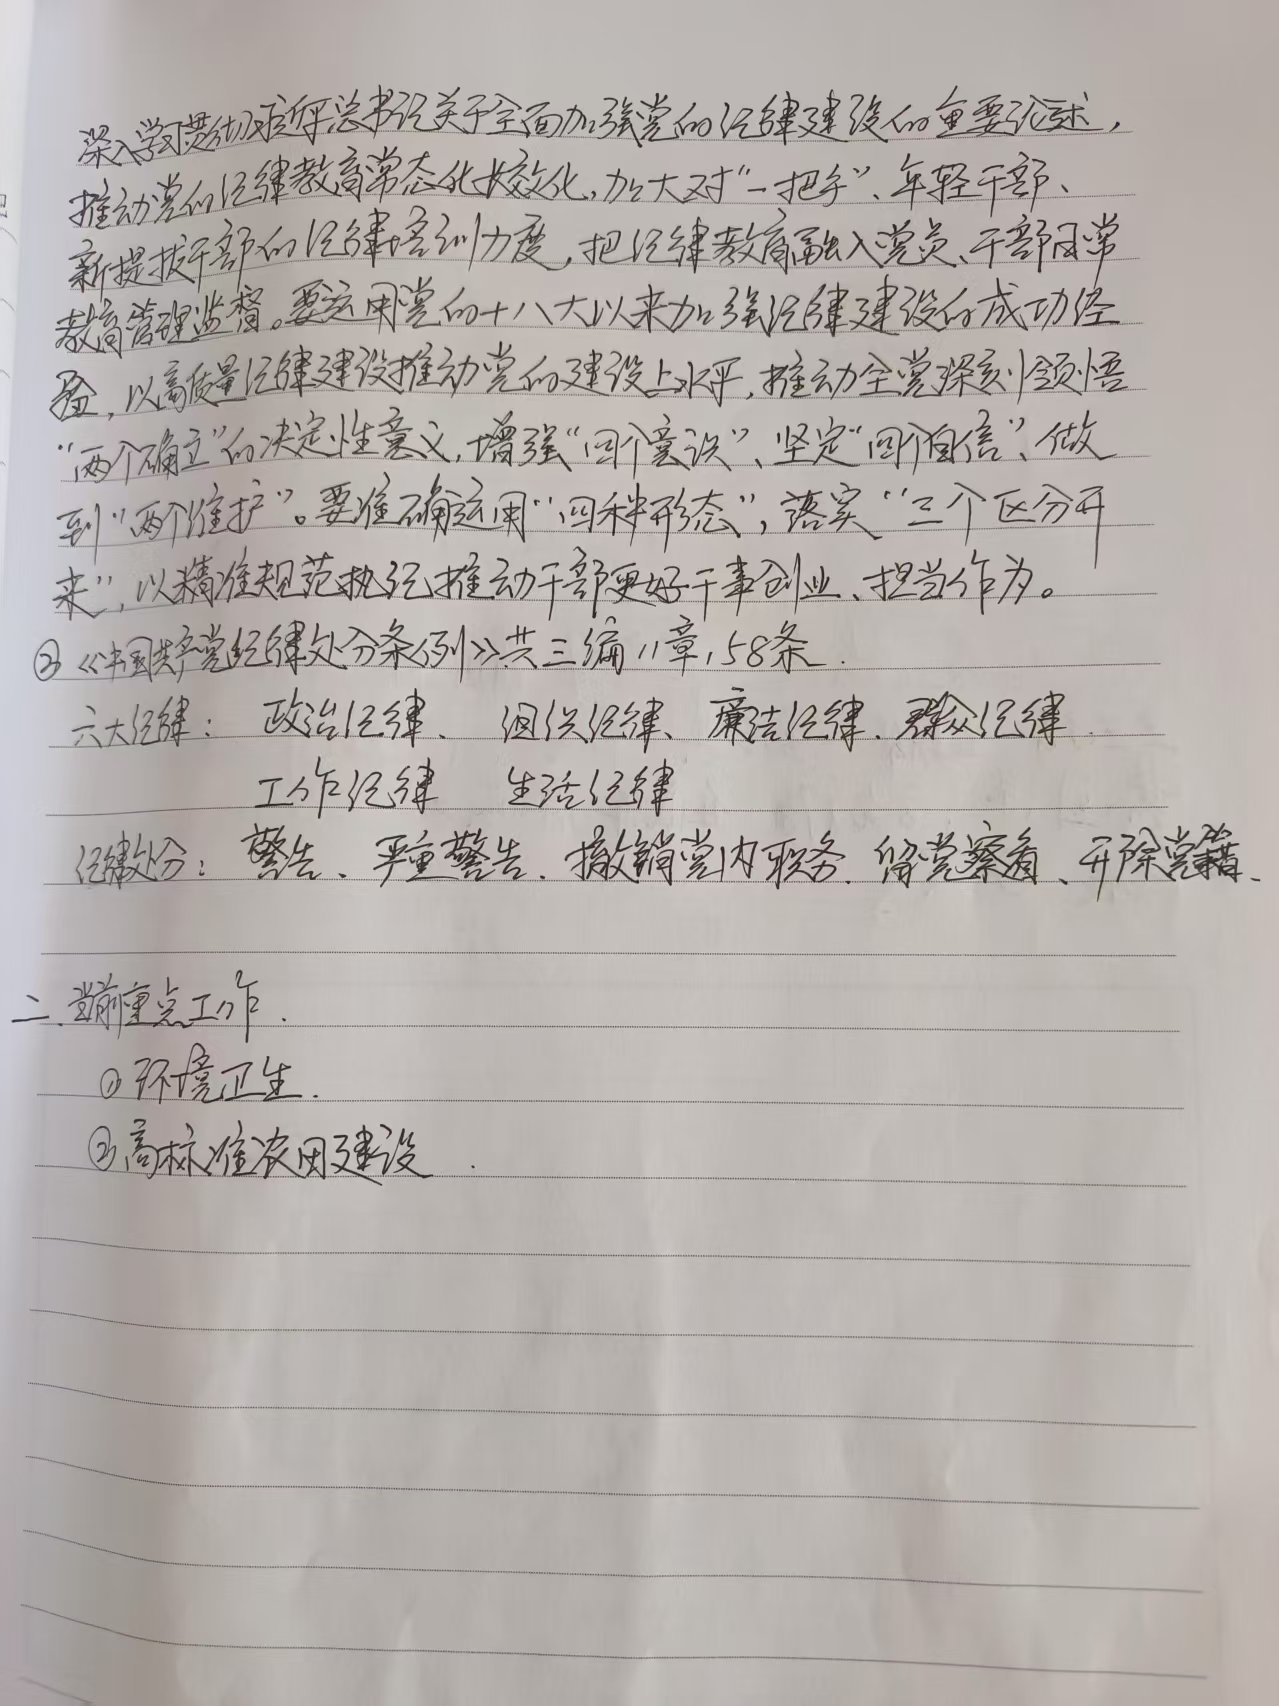 深入学习贯彻习近平总书记关于全面加强党的纪律建设的重要论述，
推动党的纪律教育常态化长效化，加大对“一把手”、年轻干部、
新提拔干部的纪律培训力度，把纪律教育融入党员、干部日常
教育管理监督。要运用党的十八大以来加强纪律建设的成功经
验，以高质量纪律建设推动党的建设上水平，推动全党深刻领悟
“两个确立”的决定性意义，增强“四个意识”、坚定“四个自信”、做
到“两个维护”。要准确运用“四种形态”，落实“三个区分开
来”，以精准规范执纪推动干部更好干事创业、担当作为。
②《中国共产党纪律处分条例》共三编11章，158条.
六大纪律： 政治纪律、 组织纪律、廉洁纪律、群众纪律.
工作纪律 生活纪律
纪律处分： 警告、严重警告、撤销党内职务、留党察看、开除党籍、
二、当前重点工作.
① 环境卫生.
② 高标准农田建设.